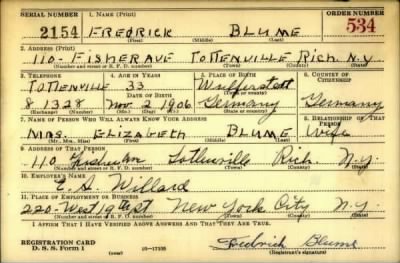 SERIAL NUMBER 1. NAME (Print) ORDER NUMBER
2154 FREDRICK BLUME 534
(First) (Middle) (Last)
2. ADDRESS (Print)
110- FISHER AVE TOTTENVILLE RICH. N.Y.
(Number and street or R. F. D. number) (Town) (County) (State)
3. TELEPHONE 4. AGE IN YEARS 5. PLACE OF BIRTH 6. COUNTRY OF CITIZENSHIP
TOTTENVILLE 33
DATE OF BIRTH (Town or county)
8 1328 Nov. 2 1906 Germany Germany
(Exchange) (Number) (Mo.) (Day) (Yr.) (State or country)
7. NAME OF PERSON WHO WILL ALWAYS KNOW YOUR ADDRESS 8. RELATIONSHIP OF THAT PERSON
MRS. ELIZABETH BLUME Wife
(Mr., Mrs., Miss) (First) (Middle) (Last)
9. ADDRESS OF THAT PERSON
110 Fisher Av Tottenville Rich. N.Y.
(Number and street or R. F. D. number) (Town) (County) (State)
10. EMPLOYER'S NAME
E. A. Willard
11. PLACE OF EMPLOYMENT OR BUSINESS
220- West 19th St New York City N.Y.
(Number and street or R. F. D. number) (Town) (County) (State)
I AFFIRM THAT I HAVE VERIFIED ABOVE ANSWERS AND THAT THEY ARE TRUE.
REGISTRATION CARD
D. S. S. Form 1 Fredrich Blume
(Registrant's signature)